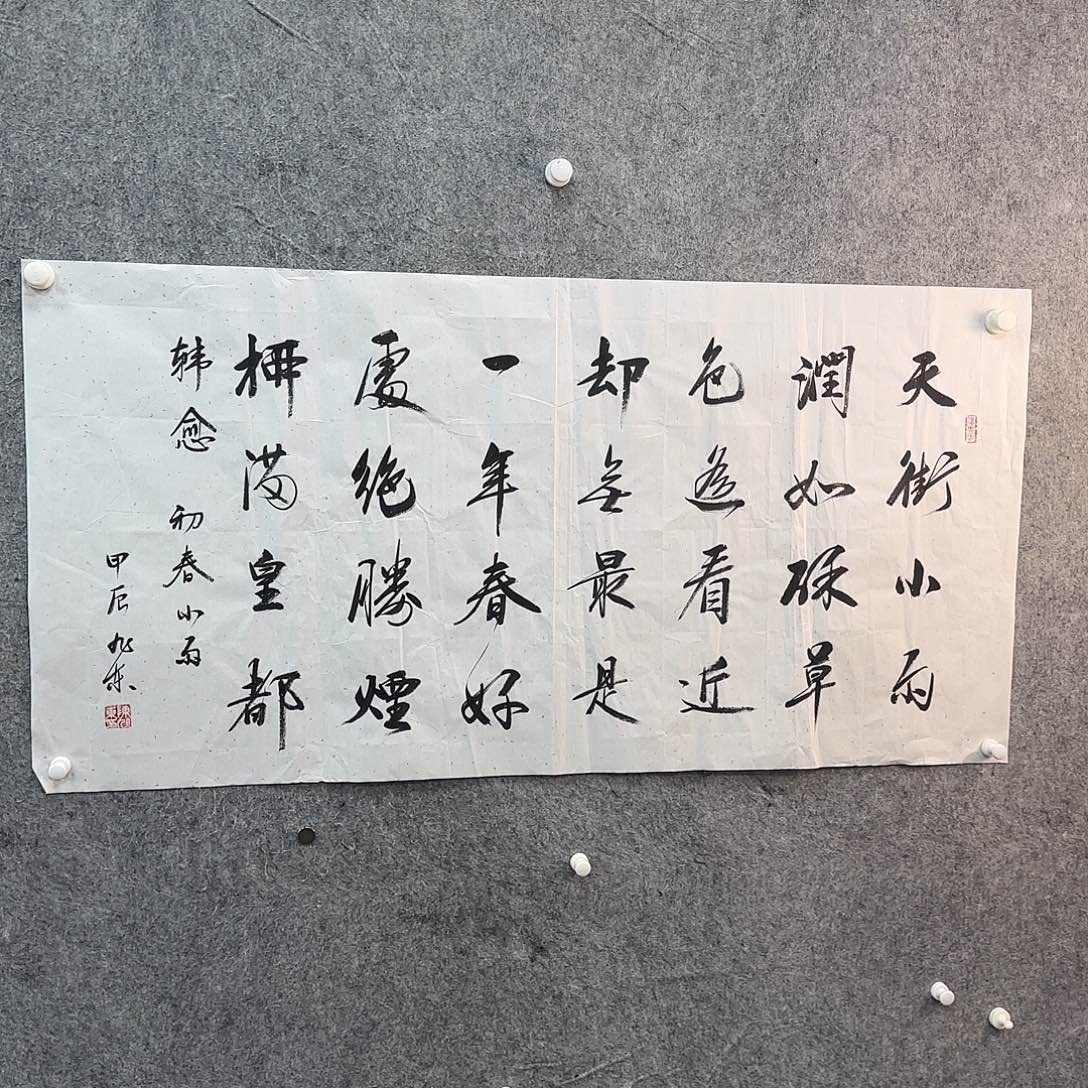 天街小雨
潤如酥草
色遥看近
却無最是
一年春好
處絶勝煙
柳满皇都
韩愈 初春小雨
甲辰 旭东